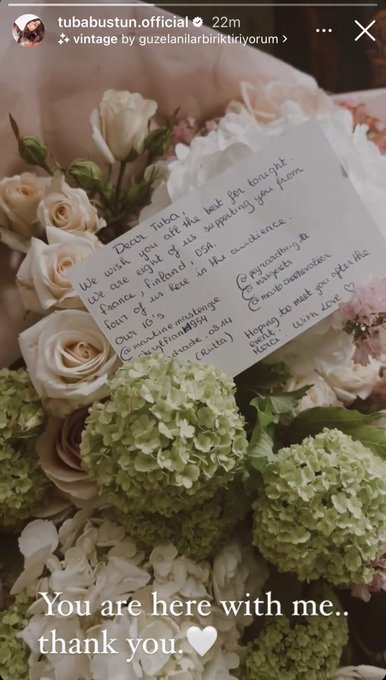 tubabustun.official 22m
vintage by guzelanilarbiriktiriyorum >
Dear Tuba,
We wish you all the best for tonight.
We are eight of us supporting you from
France, Finland, USA.
four of us here in the audience.
Our IG's
@martinemastengie
@pegnaratbrigitte
(Riitta)
Hoping to meet you after the
event.
Merci. With Love ♡
You are here with me..
thank you.🤍